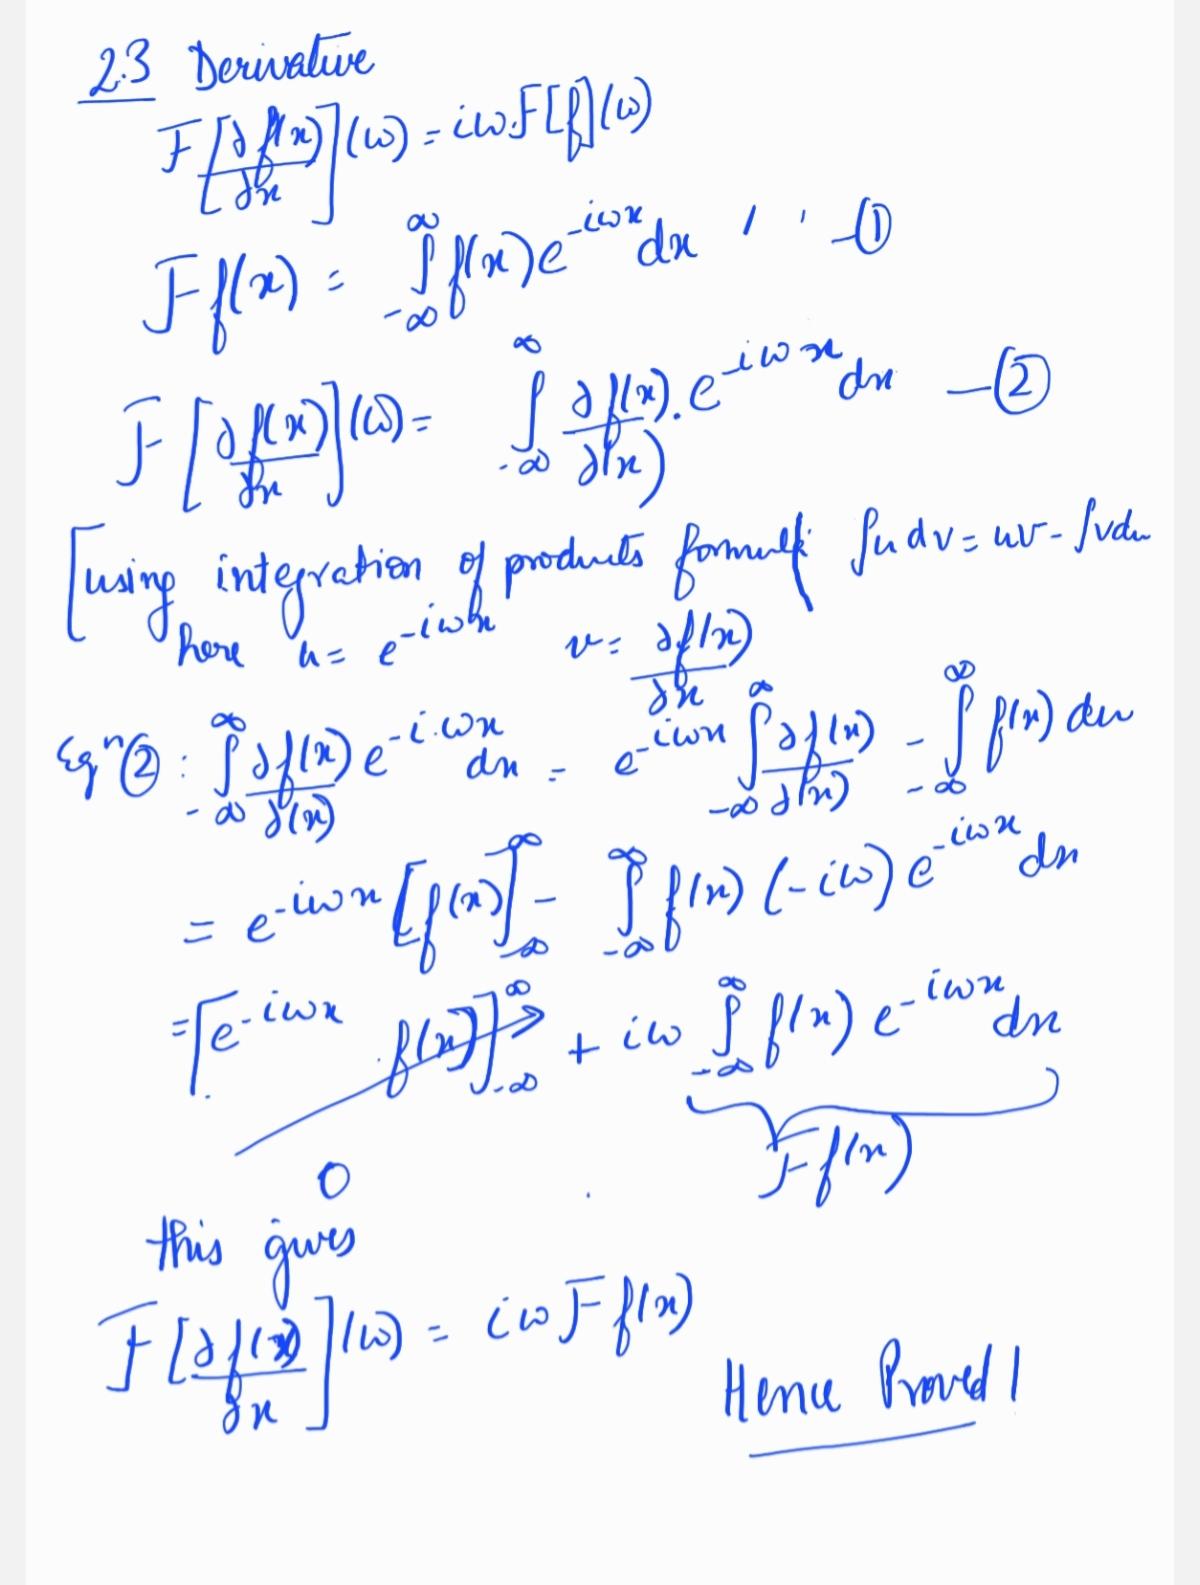 2.3 Derivative
F[∂f(x)/∂x](ω) = iω.F[f](ω)
F f(x) = ∫_{-∞}^{∞} f(x) e^{-iωx} dx —①
F[∂f(x)/∂x](ω) = ∫_{-∞}^{∞} ∂f(x)/∂(x) . e^{-iωx} dx —②
[using integration of products formula ∫u dv = uv - ∫vdu
here u = e^{-iωx} v = ∂f(x)/∂x
Eqⁿ② : ∫_{-∞}^{∞} ∂f(x)/∂(x) e^{-i.ωx} dx = e^{-iωx} ∫_{-∞}^{∞} ∂f(x)/∂(x) - ∫_{-∞}^{∞} f(x) du
= e^{-iωx} [f(x)]_{-∞}^{∞} - ∫_{-∞}^{∞} f(x) (-iω) e^{-iωx} dx
= [e^{-iωx} f(x)]_{-∞}^{∞} + iω ∫_{-∞}^{∞} f(x) e^{-iωx} dx
F f(x)
0
this gives
F[∂f(x)/∂x](ω) = iω F f(x)
Hence Proved!